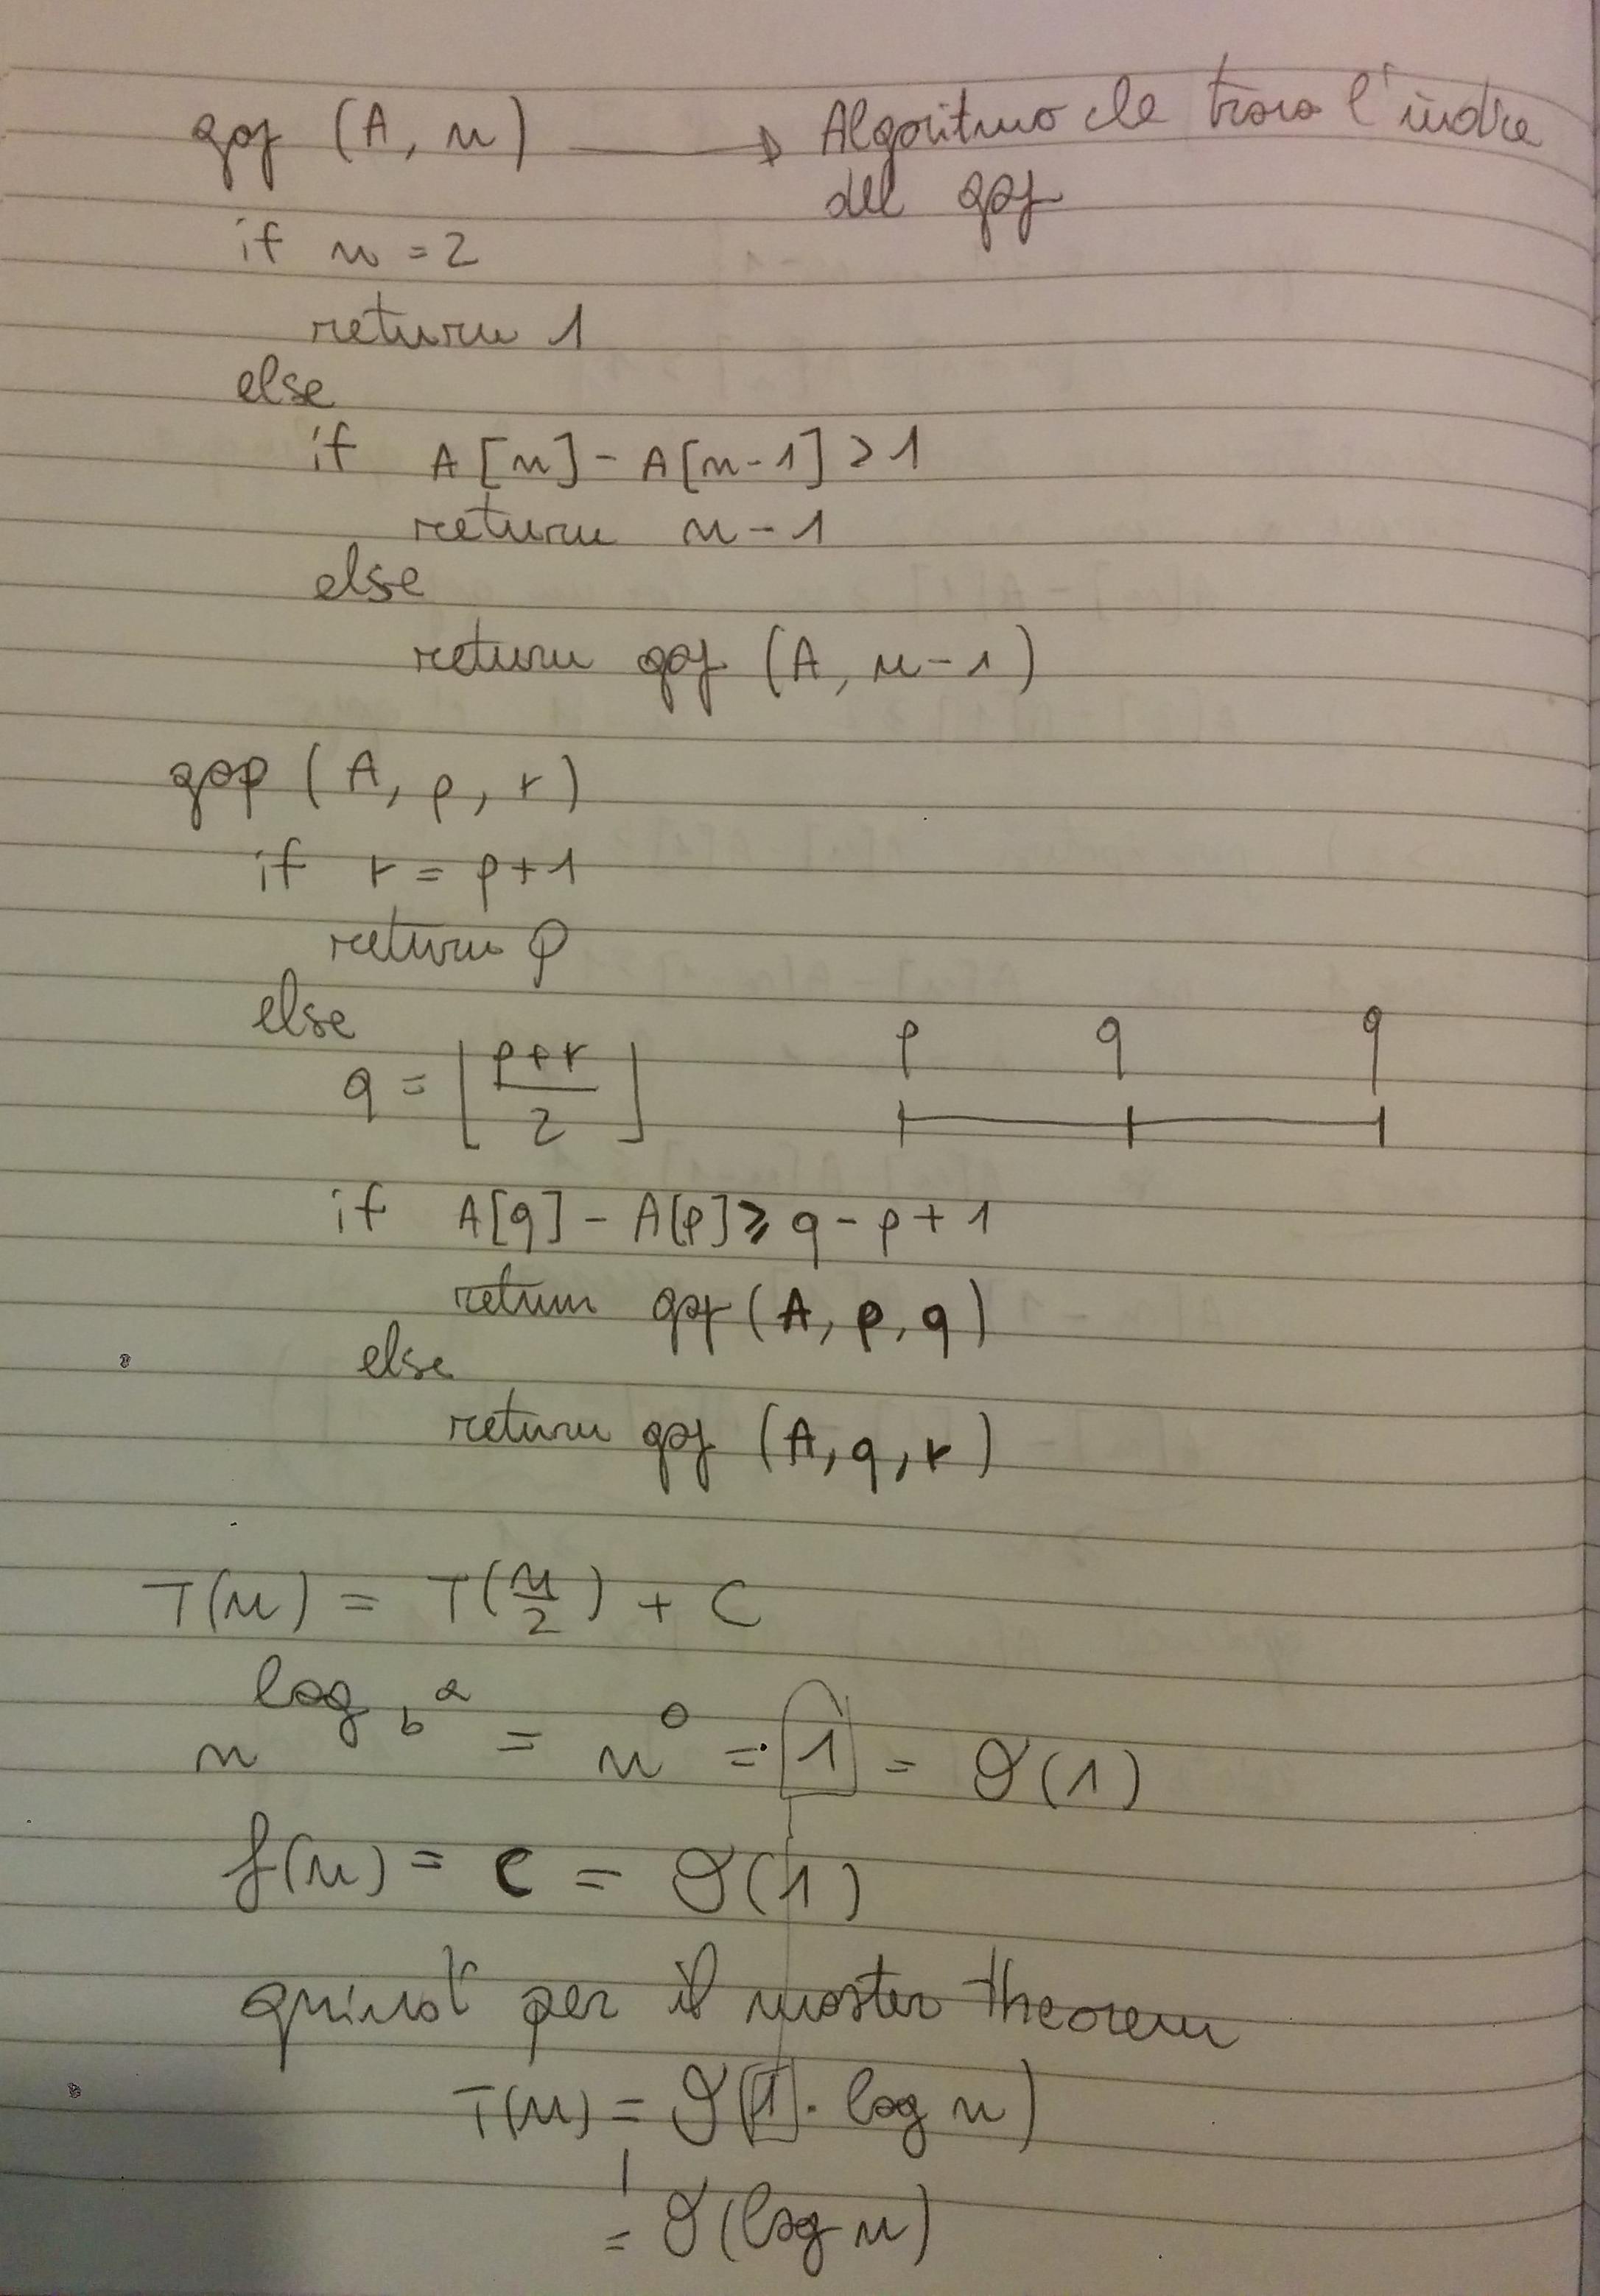 gap (A, n) → Algoritmo che trova l'indice
del gap
if n = 2
return 1
else
if A[n] - A[n-1] > 1
return n-1
else
return gap (A, n-1)
gap (A, p, r)
if r = p+1
return p
else
q = ⌊(p+r)/2⌋ p q q
if A[q] - A[p] ⩾ q - p + 1
return gap (A, p, q)
else
return gap (A, q, r)
T(n) = T(n/2) + C
n^(log_b a) = n^0 = 1 = ϑ(1)
f(n) = c = ϑ(1)
quindi per il master theorem
T(n) = ϑ(1 · log n)
= ϑ(log n)